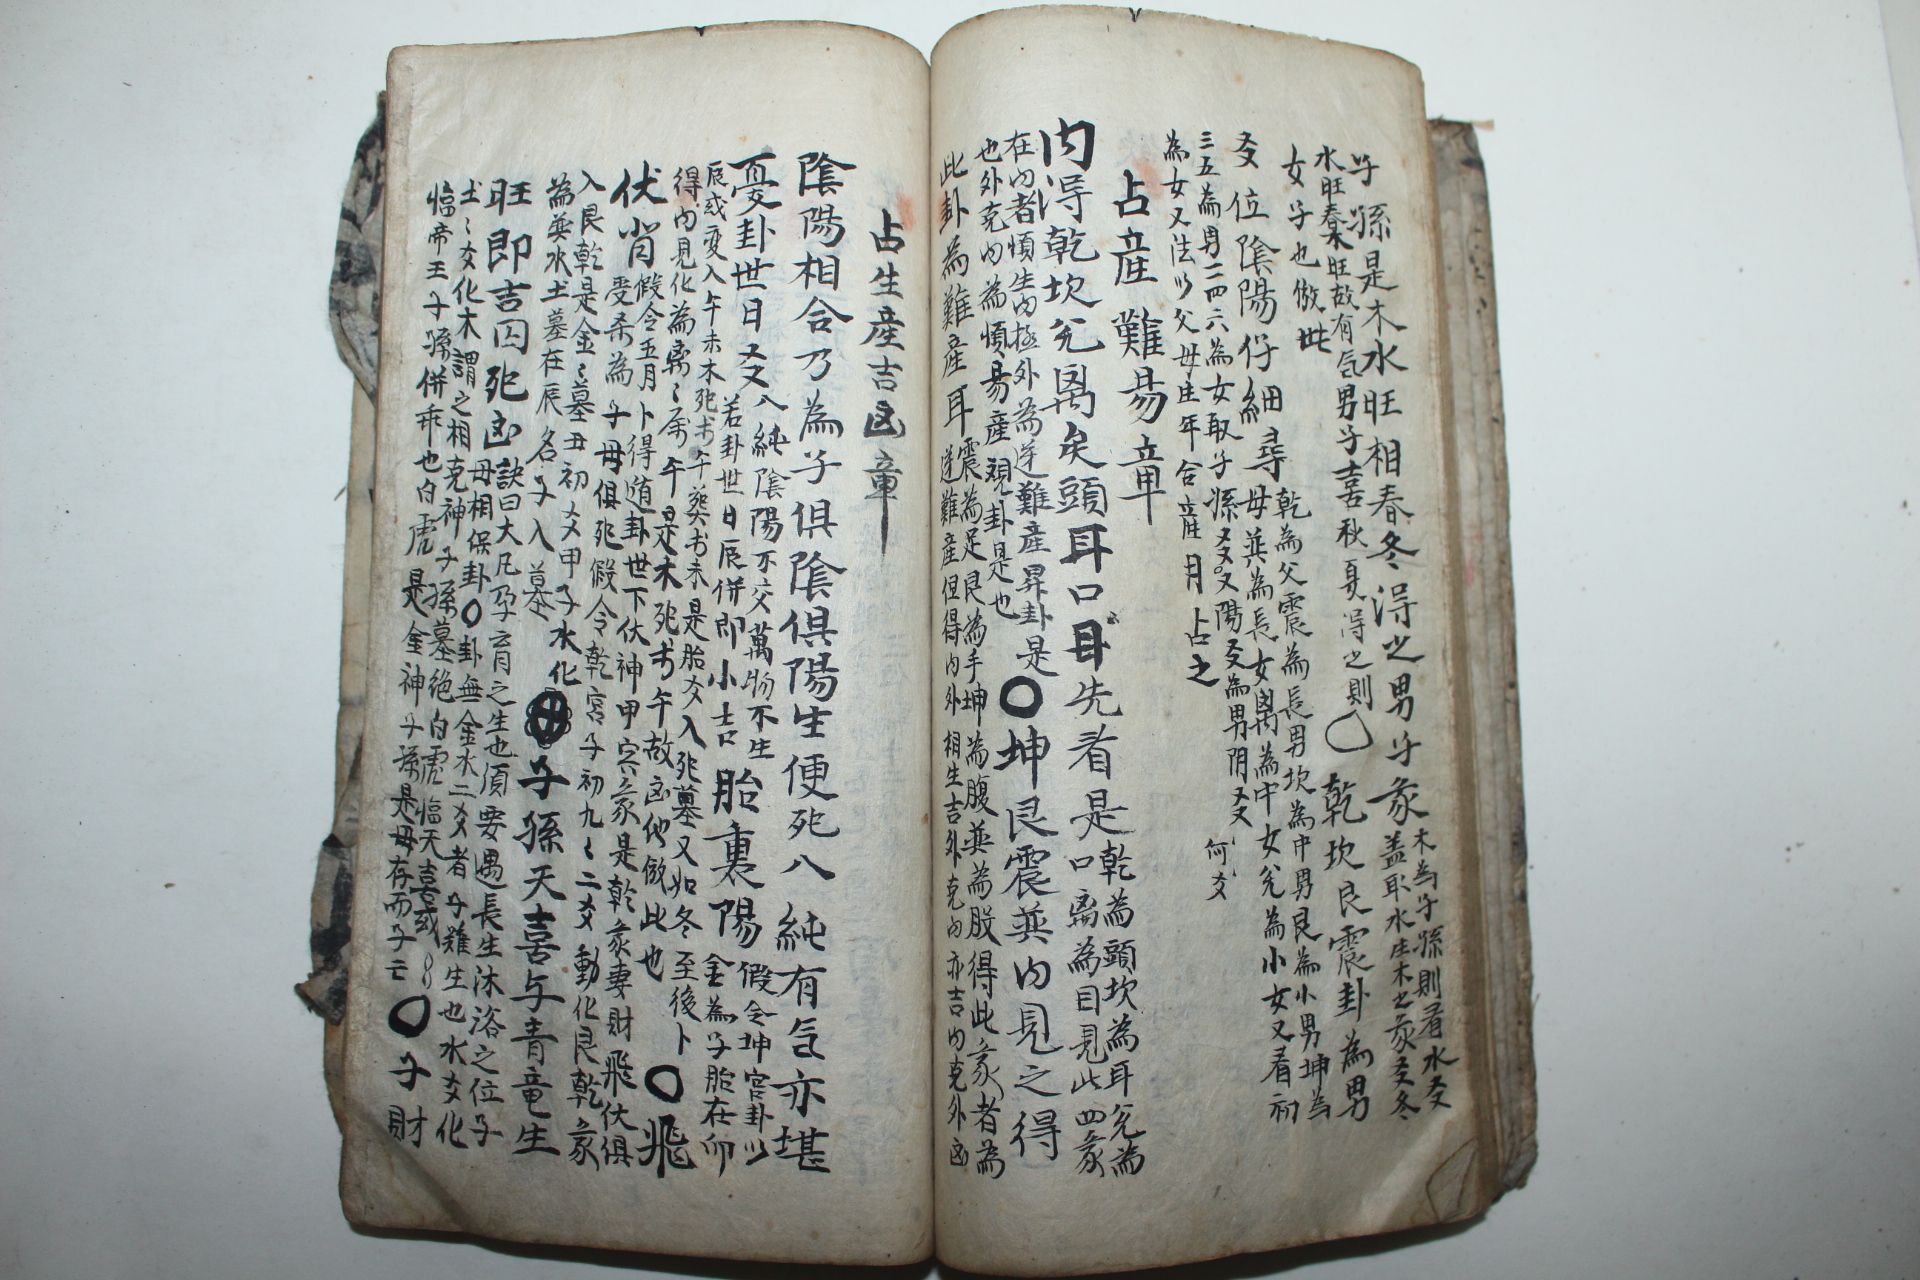 子孫是木水旺相春冬得之男子彖木為子孫則看水爻
盖耴水生木之彖爻冬
水旺春木旺故有气男子喜秋夏得之則〇乾坎艮震卦為男
女子也倣此
爻位陰陽仔細尋乾為父震為長男坎為中男艮為小男坤為
母巽為長女离為中女兊為小女又看初
三五為男二四六為女取子孫爻又陽爻為男阴爻何爻
為女又法以父母生年合産月占之
占産難易章
内得乾坎兊离矣頭耳口目先看是乾為頭坎為耳兊為
口离為目見此四彖
在内者順生内極外為逆難産昇卦是〇坤艮震巽内見之得
也外克内為順易産覌卦是也
此卦為難産耳震為足艮為手坤為腹巽為股得此彖者為
逆難産但得内外相生吉外克内亦吉内克外凶
占生産吉凶章
陰陽相合乃為子俱陰俱陽生便死八純有气亦堪
憂卦世日爻八純陰陽不交萬物不生
若卦世日辰併即小吉胎裏陽假令坤宮卦以
金為子胎在卯
辰或変入午未木死于午葬于未是胎爻入死墓又如冬至後卜
得内見化為离离屬午是木死于午故凶他倣此也〇飛
伏肖假令五月卜得遁卦世下伏神甲寅彖是乾彖妻財飛伏俱
受杀為子母俱死假令乾宮子初九二爻動化艮乾彖
入艮乾是金金墓丑初爻甲子水化
為巽水土墓在辰名子入墓子孫天喜与青竜生
旺即吉囚死凶訣曰大凡孕育之生也須要遇長生沐浴之位子
母相保卦〇卦無金水二爻者子難生也水爻化
土土爻化木謂之相克神子孫墓絶白虎臨天喜或
臨帝王子孫併乖也白虎是金神子孫是母存而子亡〇子財